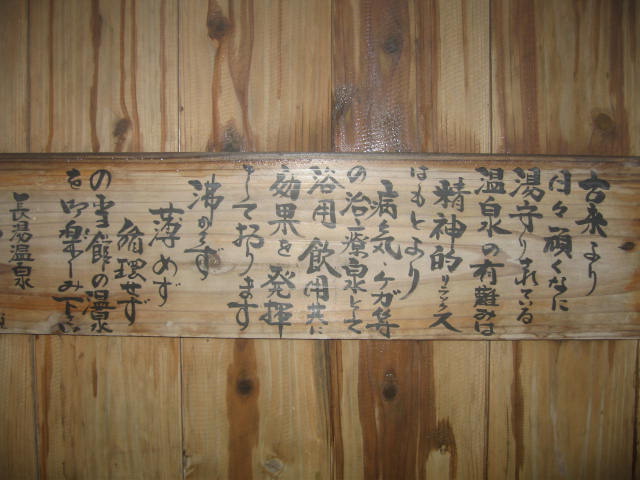 古来より
日々頑くなに
湯守りされている
温泉の有難みは
精神的リラックス
はもとより
病気ケガ等
の治療泉として
浴用飲用共に
効果を発揮
しております
沸かさず
薄めず
循環せず
の当館の温泉
を御楽しみ下さい
長湯温泉